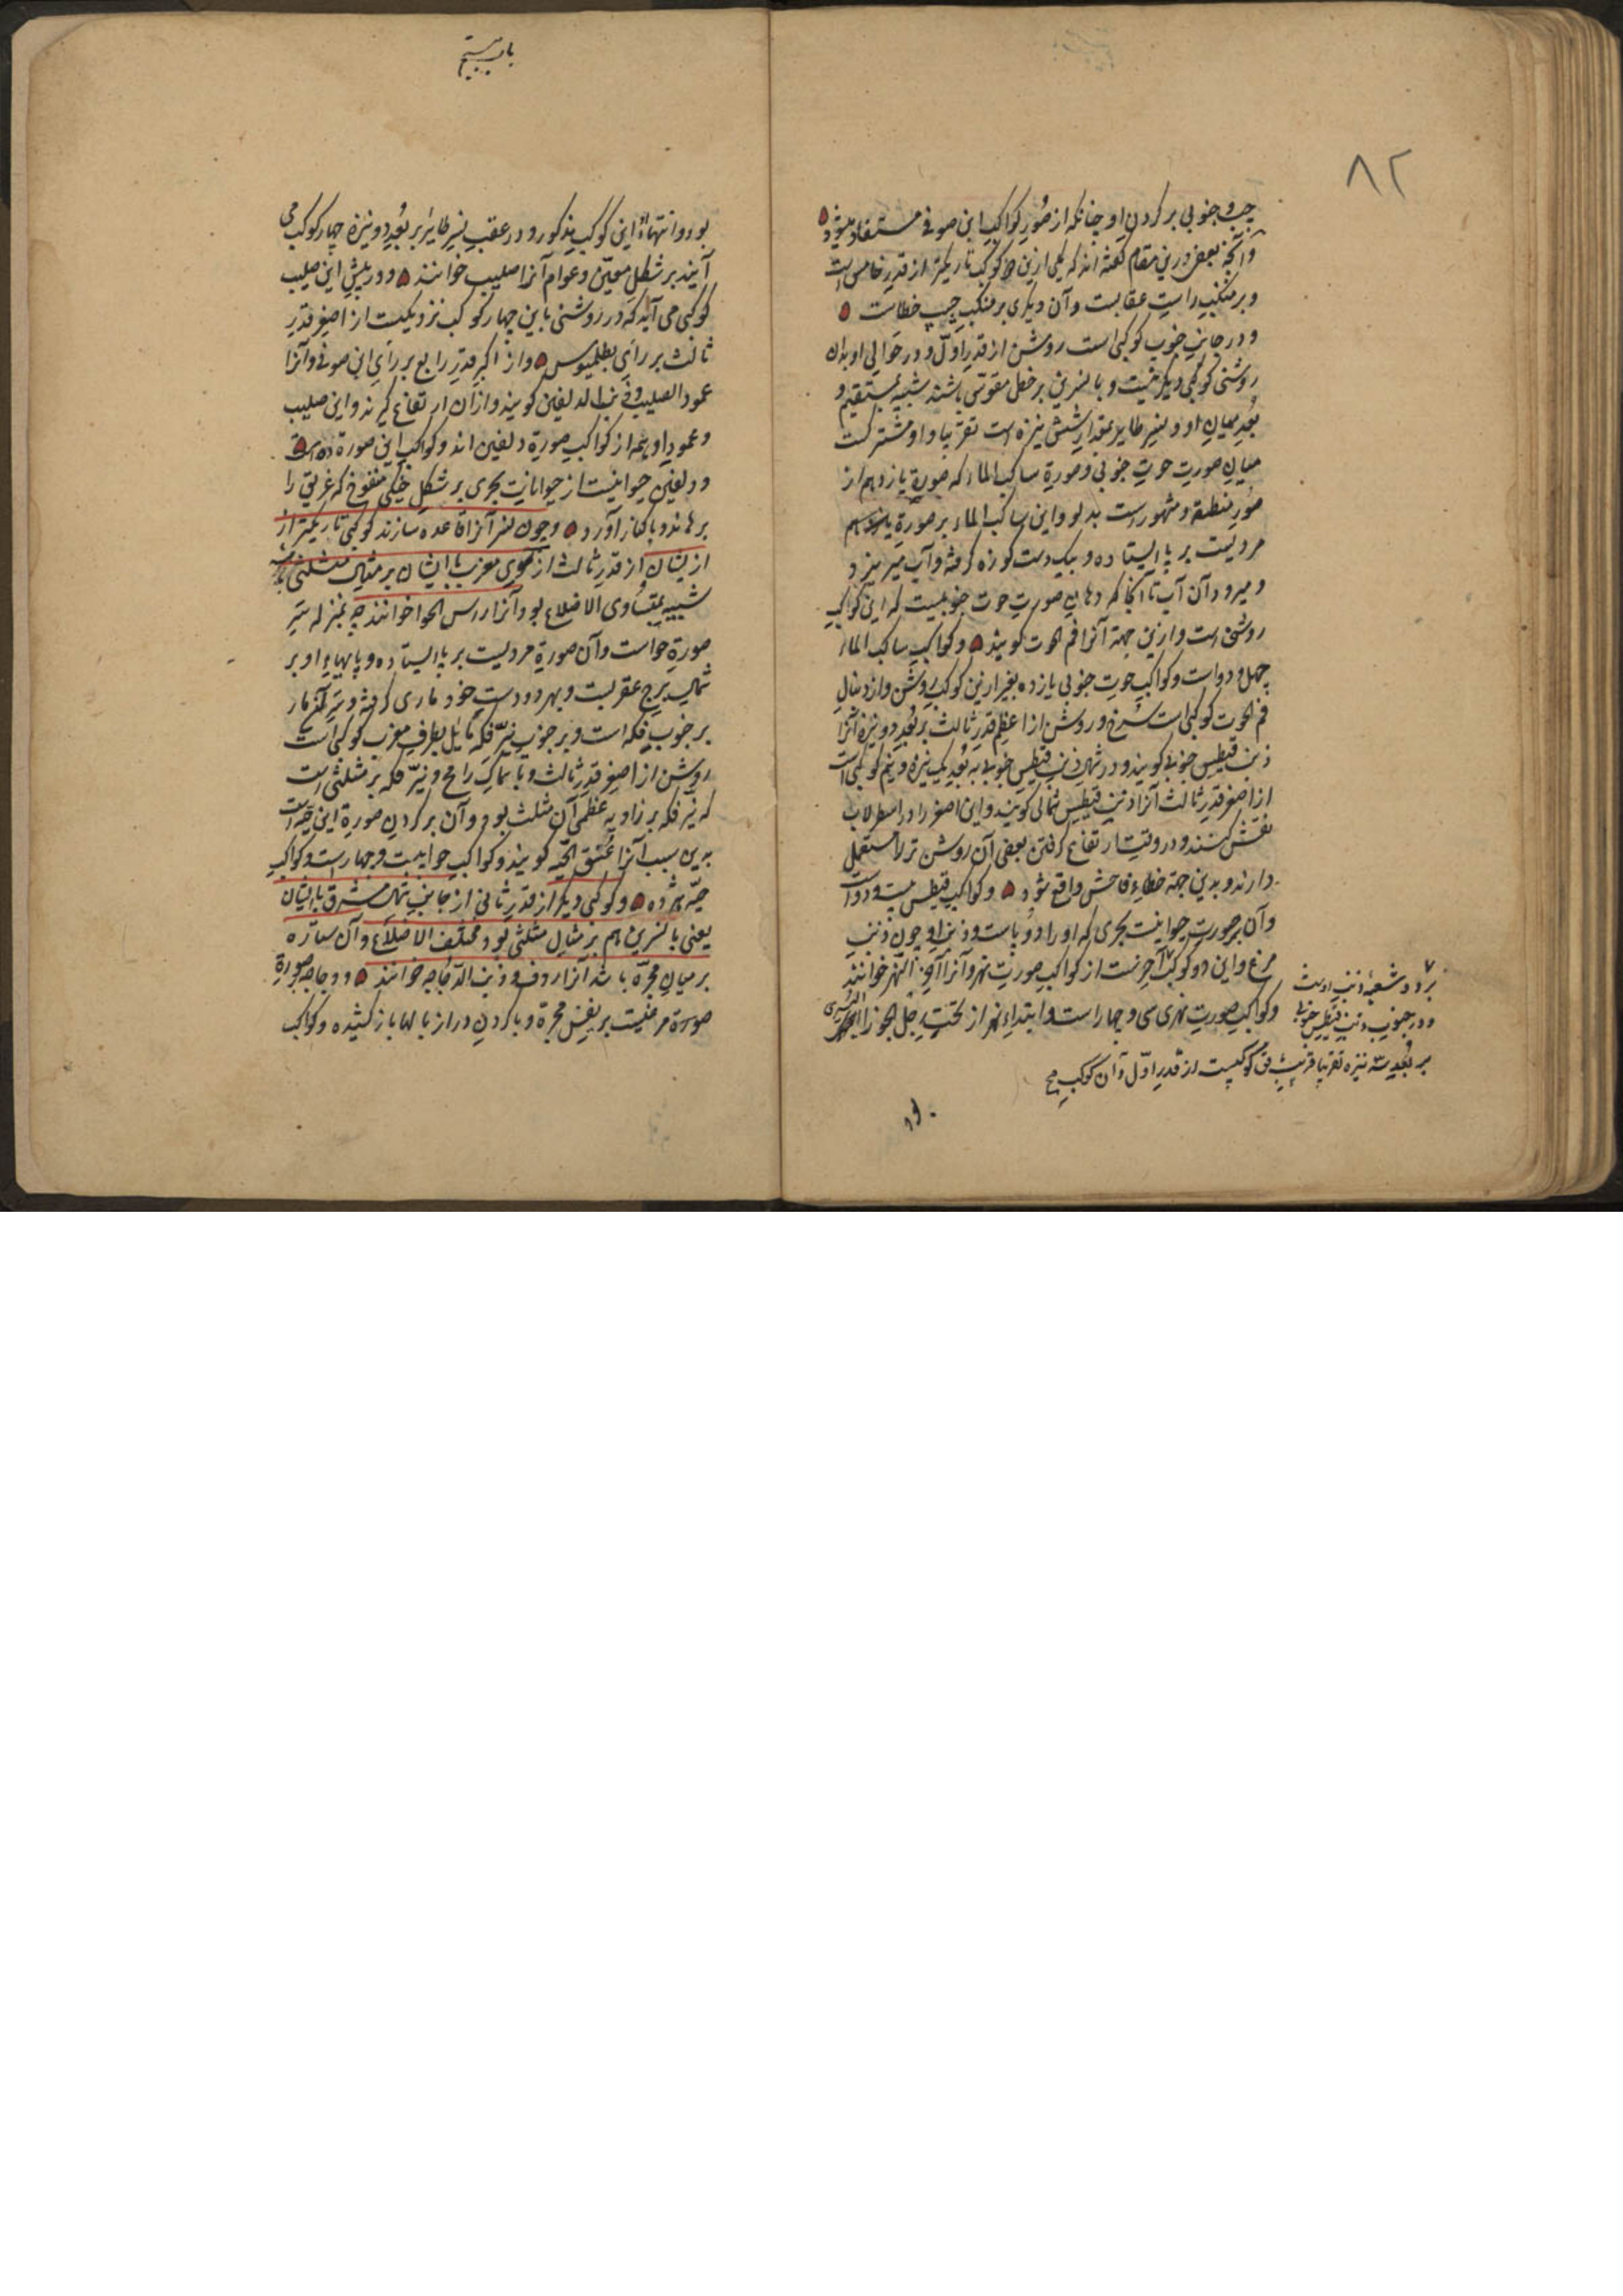 ۸۲
چپ و جنوبی بر گردن او چنانکه از صُوَر کواکب ابن صوفی مستفاد میشود
و آنچه بعض درین مقام گفته اند که یکی ازین دو کوکب تاریکتر از قدر خامس است
و بر منکب راست عقابست و آن دیگری بر منکب چپ خطاست
و در جانب جنوب کوکبی است روشن از قدر اوّل و در حوالی او بدان
روشنی کوکبی دیگر نیست و با نسرین بر خطی مقوّسی باشند شبیه بمستقیم و
بُعد میان او و نسر طایر بمقدار شش نیزه است تقریبا و او مشترکست
میان صورت حوت جنوبی و صورة ساکب الماء که صورة یازدهم از
صُوَر منطقه و مشهور است بدلو و این ساکب الماء بر صورة
مردیست بر پا ایستاده و بیکدست کوزه گرفته و آب میریزد
و میرود آن آب تا آنجا که دهان صورت حوت جنوبیست که این کوکب
روشن است و ازین جهة آنرا فم الحوت گویند و کواکب ساکب الماء
چهل و دو است و کواکب حوت جنوبی یازده بغیر ازین کوکب روشن و از دنبال
فم الحوت کوکبی است سرخ و روشن از اعظم قدر ثالث بر بُعد دو نیزه آنرا
ذنب قیطس جنوبی گویند و در شمال ذنب قیطس جنوبی به بُعد یک نیزه و نیم کوکبی است
از اصغر قدر ثالث آنرا ذنب قیطس شمالی گویند و این اصغر را در اسطرلاب
نقش کنند و در وقت ارتفاع گرفتن بعضی آن روشن تر را مستعمل
دارند و بدین جهة خطاء فاحش واقع شود و کواکب قیطس بیست و دو است
و آن بر صورت حیوانیست بحری که او را دو پا است و ذنب او چون ذنب
مرغ و این دو کوکب
بر دو شعبهٔ ذنب اوست
و در جنوب ذنب قیطس جنوبی
بر بُعد سه نیزه تقریبا کوکبیست از قدر اوّل و آن کوکب
آخر نست از کواکب صورت نهر و آنرا آخر النهر خوانند
و کواکب صورت نهری سی و چهار است و ابتداء نهر از تحت رِجل الجوزا الیسری
باب بیستم
بود و انتهاءُ این کوکب مذکور و در عقب نسر طایر بر بُعد دو نیزه چهار کوکب می
آیند بر شکل معیّن و عوام آنرا صلیب خوانند و در پیش این صلیب
کوکبی می آید که در روشنی باین چهار کوکب نزدیکیست از اصغر قدر
ثالث بر رأی بطلمیوس و از اکبر قدر رابع بر رأی ابن صوفی و آنرا
عمود الصلیب و ذنب الدلفین گویند و از آن ارتفاع گیرند و این صلیب
و عمود او همه از کواکب صورة دلفین اند و کواکب این صورة ده است
و دلفین حیوانیست از حیوانات بحری بر شکل خیکی منفوخ که غریق را
برهاند و با کنار آورد و چون نسر آنرا قاعده سازند کوکبی تاریکتر از
ازیشان از قدر ثالث از سوی مغرب با ایشان بر مثال مثلثی باشد
شبیه بمتساوی الاضلاع بود و آنرا راس الحوا خوانند چه بمنزله سَرِ
صورة حواست و آن صورة مردیست بر پا ایستاده و پایهاء او بر
شمال برج عقربست و بهر دو دست خود ماری گرفته و سَر آن مار
بر جنوب فکه است و بر جنوب نیّر فکه مایل بطرف مغرب کوکبی است
روشن از اصغر قدر ثالث و با سماک رامح و نیّر فکه بر مثلثی است
که نیّر فکه بر زاویه عظمی آن مثلث بود و آن بر گردن صورة این حیّه است
بدین سبب آنرا عُنق الحیّه گویند و کواکب حوا بیست و چهار است و کواکب
حیّه هژده و کوکبی دیگر از قدر ثانی از جانب شمال مشرق با ایشان
یعنی با نسرین هم بر مثال مثلثی بود مختلف الاضلاع و آن ستاره
بر میان مجرّه باشد آنرا ردف و ذنب الدّجاجه خوانند و دجاجه بصورة
صورة مرغیست بر نفس مجرّه و با گردن دراز بالها باز کشیده و کواکب